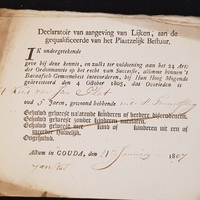 Declaratoir van aangeving van Lijken, aan de
gequalificeerde van het Plaatzelijk Bestuur.
IK ondergeteekende
geve bij deze kennis, en zulks ter voldoening aan het 24 Art:
der Ordonnantie op het recht van Successie, alömme binnen 't
Bataafsch Gemeenebest intevorderen, bij Hun Hoog Mogende
gearresteerd den 4 October 1805, dat Overleden is
oud 5 Jaren, gewoond hebbende
Gehuwd geweest nalatende kinderen of verdere bijsterveheid
Gehuwd geweest zonder kinderen
Gehuwd latende kind of kinderen uit een of
meerder Huwelijk.
Ongehuwd.
Actum in GOUDA, den 21 January 1807